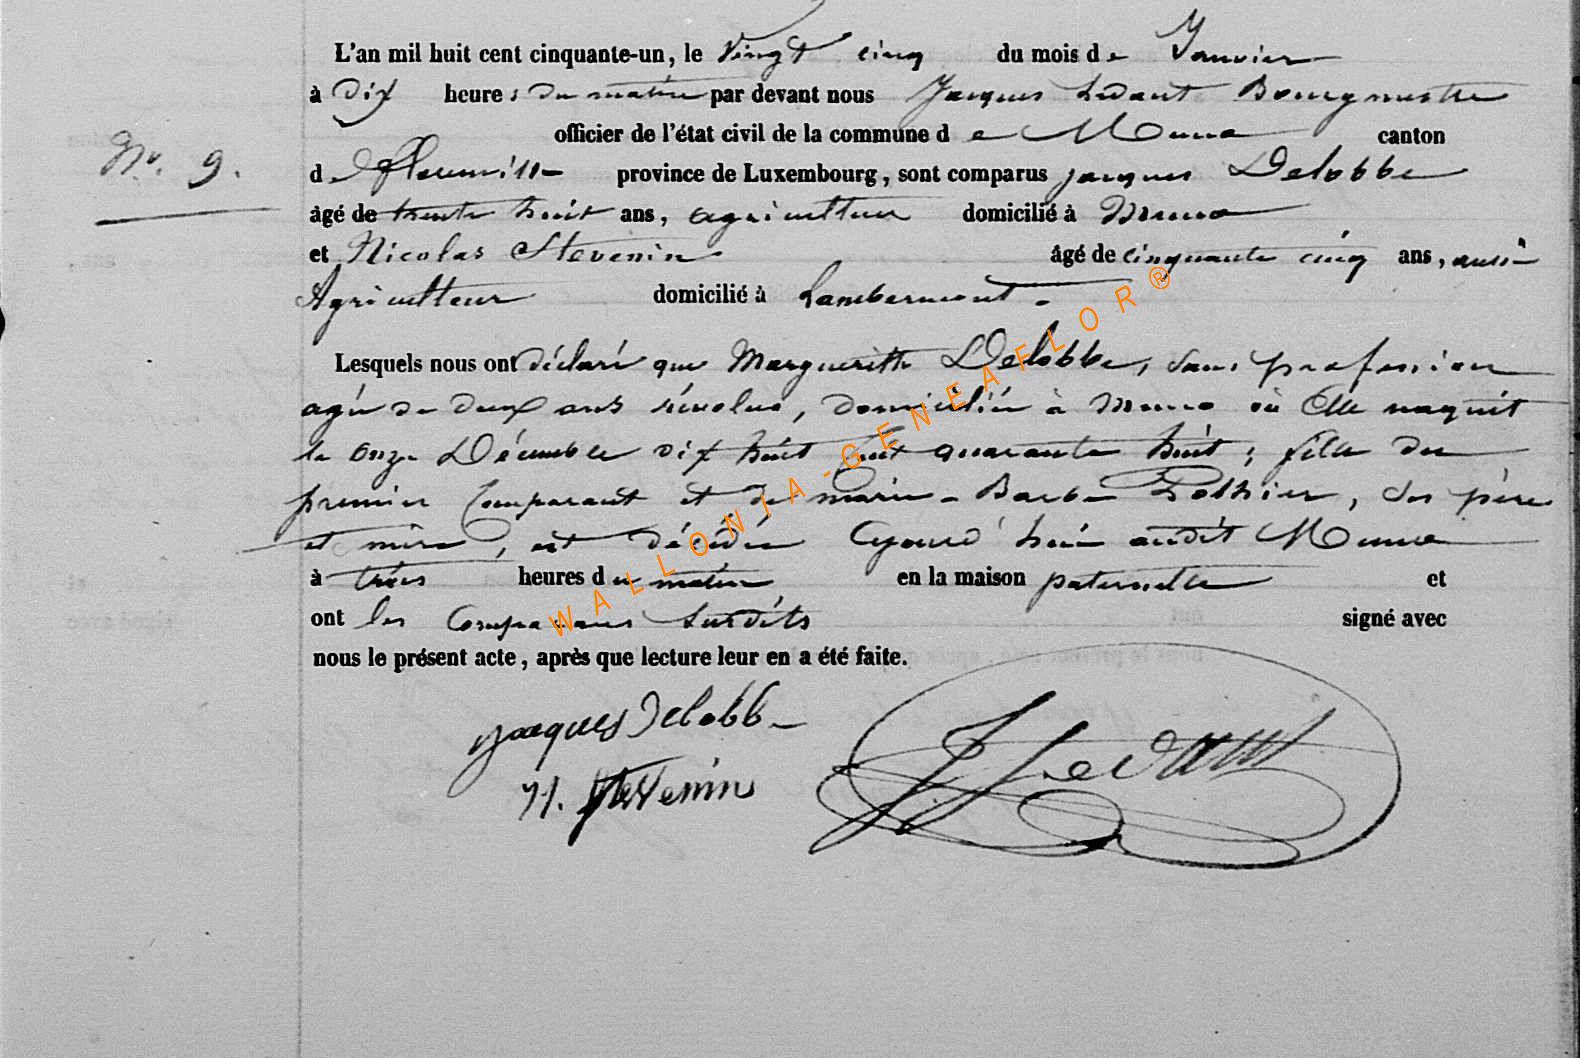 L'an mil huit cent cinquante-un, le Vingt cinq du mois de Janvier
à Dix heures du matin par devant nous Jacques Ledant Bourgmestre
officier de l'état civil de la commune de Muno canton
N°. 9.
de florenville province de Luxembourg, sont comparus jacques Delobbe
âgé de trente huit ans, agriculteur domicilié à Muno
et Nicolas Stevenin âgé de cinquante cinq ans, aussi
Agriculteur domicilié à Lambermont.
Lesquels nous ont déclaré que Margueritte Delobbe, sans profession
agée de deux ans révolus, domiciliée à Muno où Elle naquit
le onze Décembre dix huit cent quarante huit, fille du
premier Comparant et de marie-Barbe Pothier, ses père
et mère, est décédée aujourd'hui audit Muno
à trois heures du matin en la maison paternelle et
ont les Comparans susdits signé avec
nous le présent acte, après que lecture leur en a été faite.
jacques Delobbe
N. Stevenin
J Ledant
WALLONIA-GENEAFLOR®